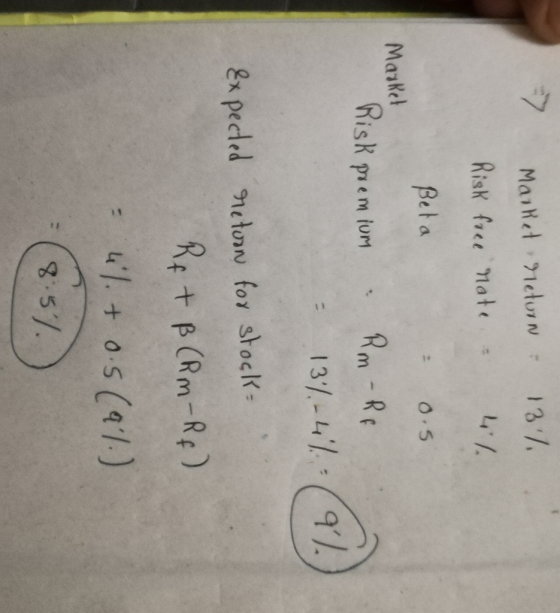 => Market return = 13%
Risk free rate = 4%
Beta = 0.5
Market
Risk premium = Rm - Rf
= 13% - 4% = 9%
Expected return for stock =
Rf + β (Rm - Rf)
= 4% + 0.5 (9%)
= 8.5%